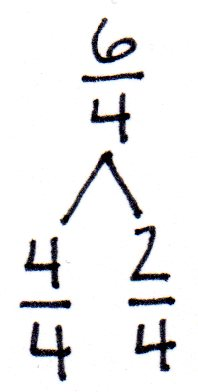 6/4
4/4 2/4